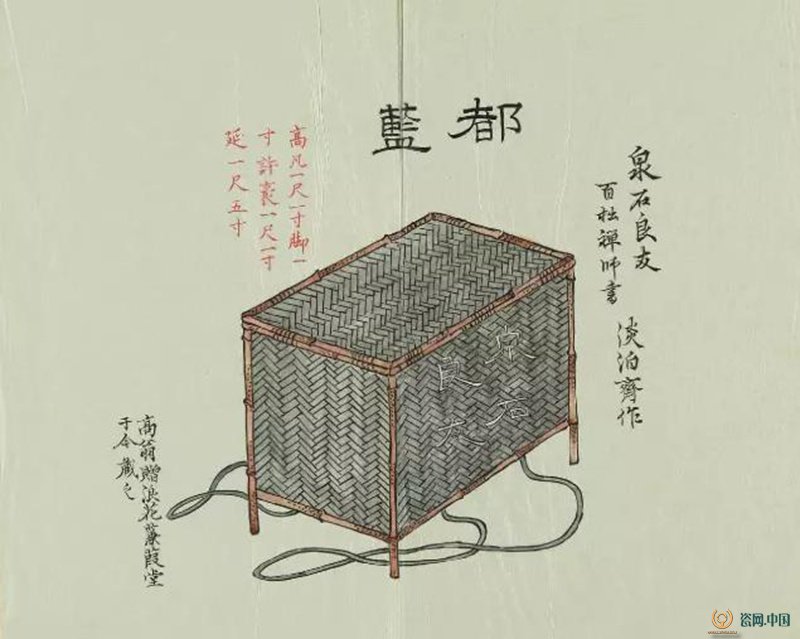 都藍
泉石良友
百拙禅师書
淡泊齊作
高凡一尺一寸脚一
寸許袤一尺一寸
延一尺五寸
泉石
良友
高翁贈浪花蒹葭堂
于今藏之
瓷网.中国